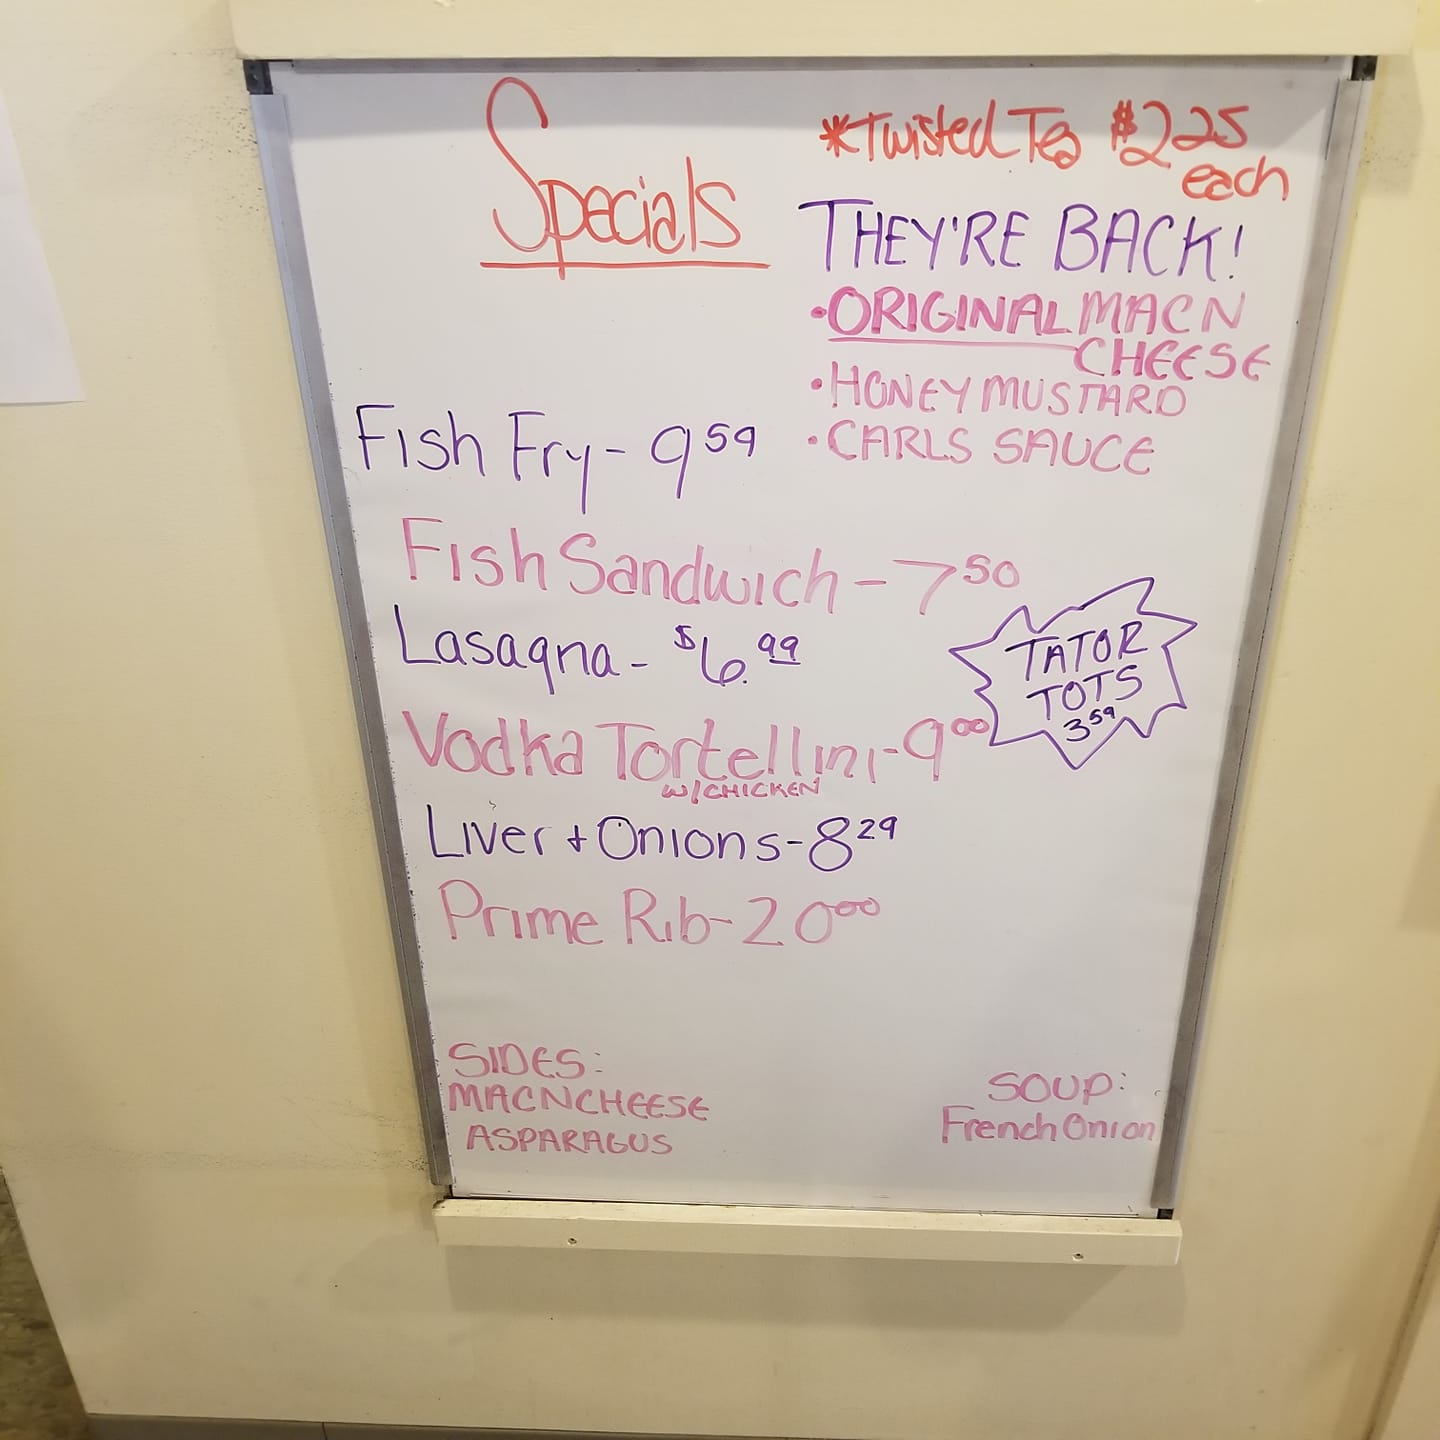 Specials
*Twisted Tea $2.25
each
THEY'RE BACK!
•ORIGINAL MAC N
CHEESE
•HONEY MUSTARD
•CARLS SAUCE
Fish Fry- 9 59
Fish Sandwich - 7 50
Lasagna - $6.99
TATOR
TOTS
3 59
Vodka Tortellini-9 00
W/CHICKEN
Liver + Onions-8 29
Prime Rib-20 00
SIDES:
MACNCHEESE
ASPARAGUS
SOUP:
French Onion